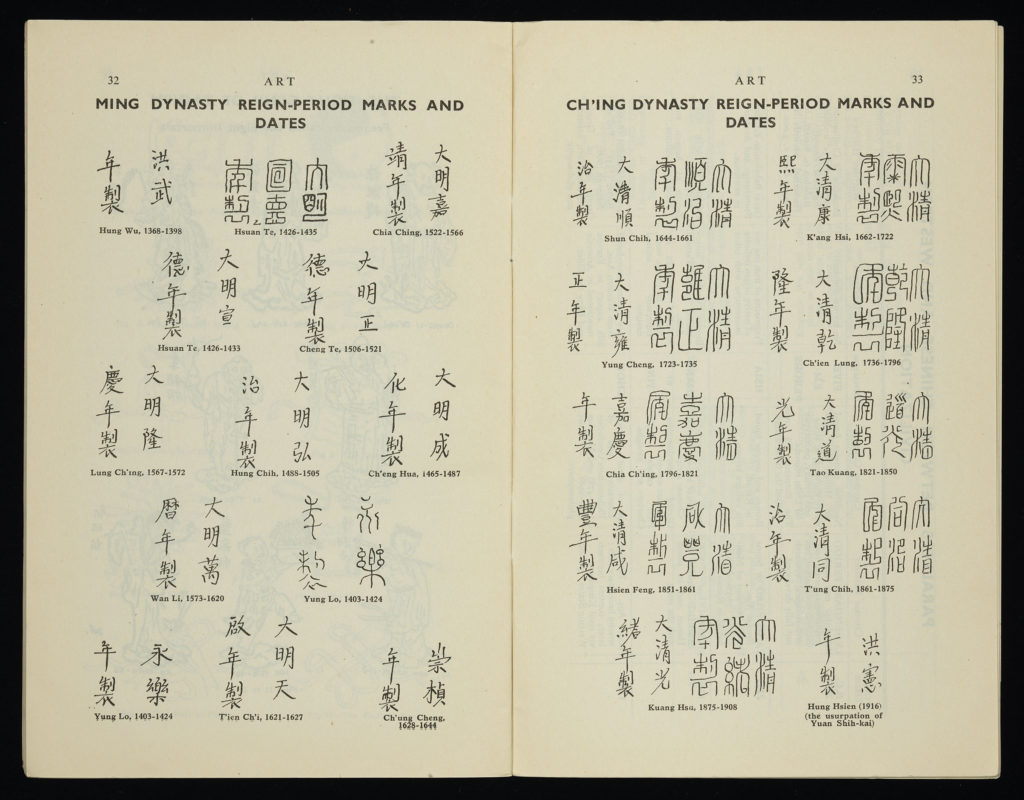 32
ART
MING DYNASTY REIGN-PERIOD MARKS AND
DATES
洪武
年製
Hung Wu, 1368-1398
大明
宣德
年製
Hsuan Te, 1426-1435
大明嘉
靖年製
Chia Ching, 1522-1566
大明宣
德年製
Hsuan Te 1426-1433
大明正
德年製
Cheng Te, 1506-1521
大明隆
慶年製
Lung Ch'ing, 1567-1572
大明弘
治年製
Hung Chih, 1488-1505
大明成
化年製
Ch'eng Hua, 1465-1487
大明萬
曆年製
Wan Li, 1573-1620
永樂
年製
Yung Lo, 1403-1424
永樂
年製
Yung Lo, 1403-1424
大明天
啟年製
T'ien Ch'i, 1621-1627
崇楨
年製
Ch'ung Cheng,
1628-1644
ART
33
CH'ING DYNASTY REIGN-PERIOD MARKS AND
DATES
大清
順治
年製
大清順
治年製
Shun Chih, 1644-1661
大清
康熙
年製
大清康
熙年製
K'ang Hsi, 1662-1722
大清
雍正
年製
大清雍
正年製
Yung Cheng, 1723-1735
大清
乾隆
年製
大清乾
隆年製
Ch'ien Lung, 1736-1796
大清
嘉慶
年製
嘉慶
年製
Chia Ch'ing, 1796-1821
大清
道光
年製
大清道
光年製
Tao Kuang, 1821-1850
大清
咸豐
年製
大清咸
豐年製
Hsien Feng, 1851-1861
大清
同治
年製
大清同
治年製
T'ung Chih, 1861-1875
大清
光緒
年製
大清光
緒年製
Kuang Hsu, 1875-1908
洪憲
年製
Hung Hsien (1916)
(the usurpation of
Yuan Shih-kai)